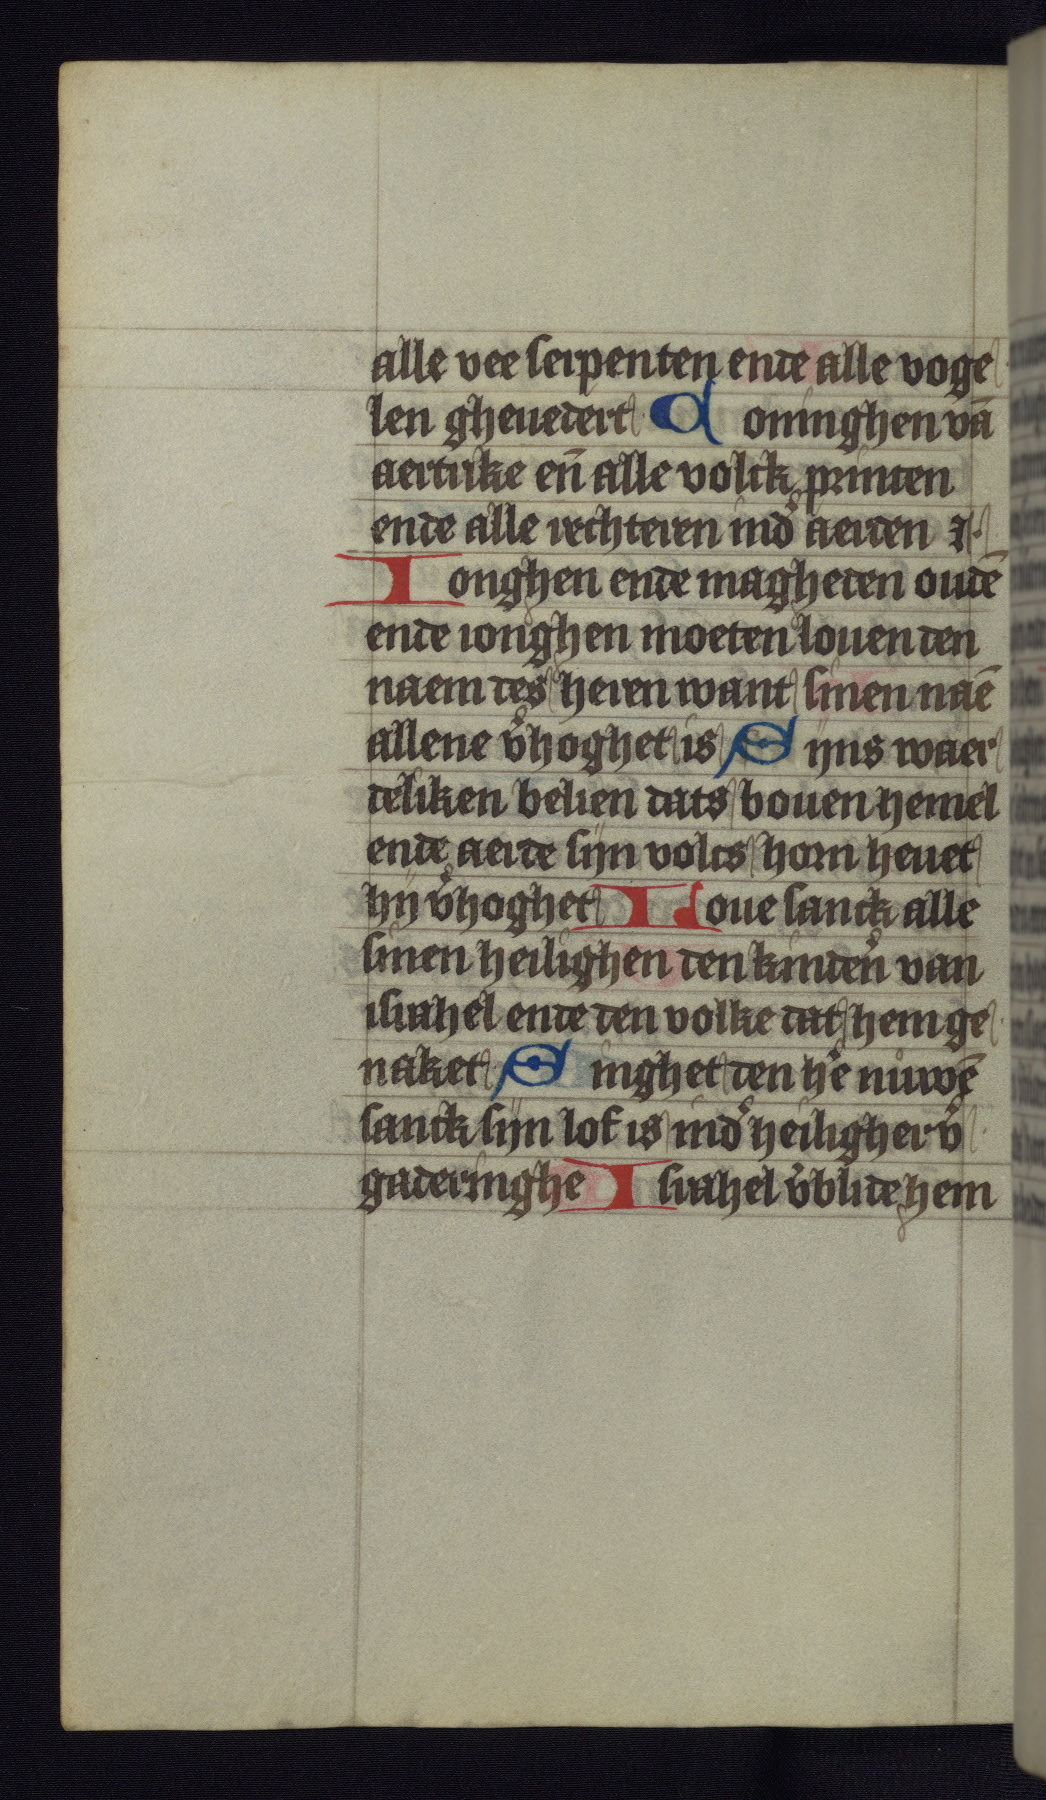 alle vee serpenten ende alle voge
len gheuedert d oninghen vā
aertrike eñ alle volck princen
ende alle rechteren ind᷑ aerden
I onghen ende magheden oudē
ende ionghen moeten louen den
naem des heren want sinen naē
allene v᷑hoghet is S ijns waer
deliken belien dats bouen hemel
ende aerde sijn volcs horn heuet
hij v᷑hoghet L oue sanck alle
sinen heilighen den kinden᷑ van
israhel ende den volke dat hem ge
naket S inghet den he᷑ nuwē
sanck sijn lof is ind᷑ heiligher v᷑
gaderinghe I srahel v᷑blide hem